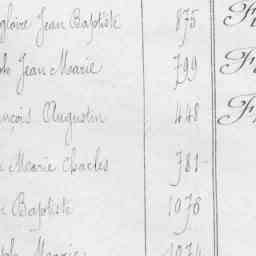 gloire Jean Baptiste 875
ph Jean Marie 799
nçois Augustin 448
Marie Charles 781
Baptiste 1076
ph Marie 1074